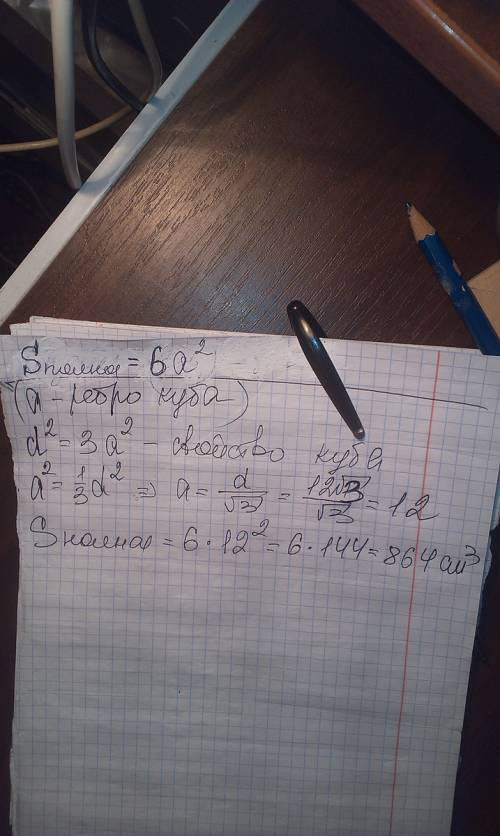 Sполная = 6a²
(a - ребро куба)
d² = 3a² - свойство куба
a² = 1/3 d² => a = d/√3 = 12√3/√3 = 12
Sполная = 6 · 12² = 6 · 144 = 864 см³